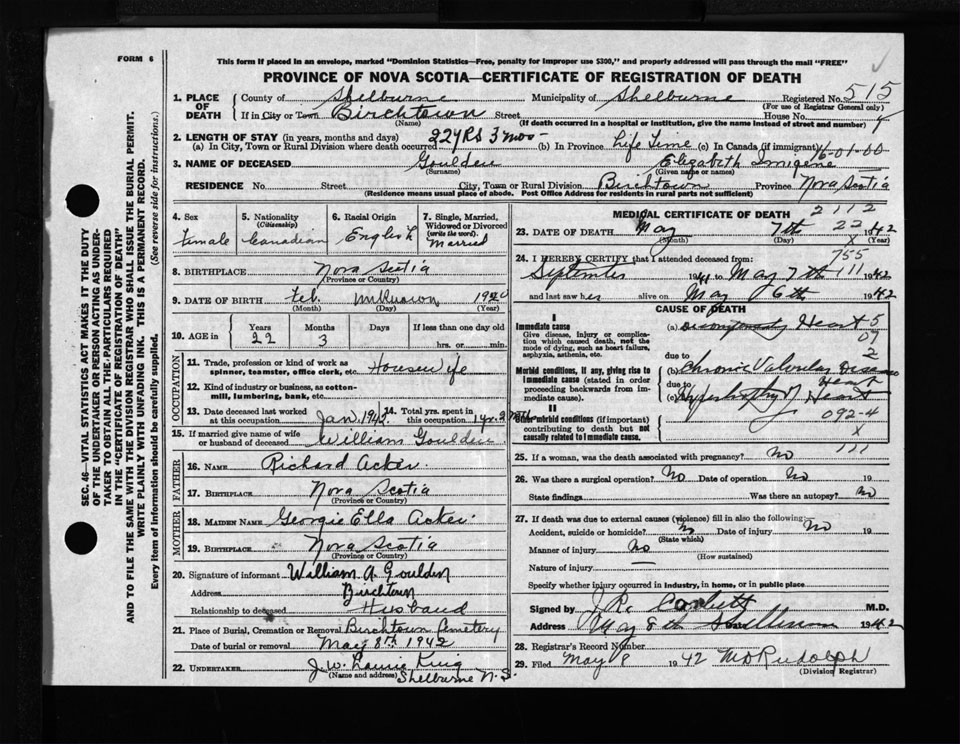 FORM 6
This form if placed in an envelope, marked "Dominion Statistics—Free, penalty for improper use $300," and properly addressed will pass through the mail "FREE"
PROVINCE OF NOVA SCOTIA—CERTIFICATE OF REGISTRATION OF DEATH
1. PLACE OF DEATH County of Shelburne Municipality of Shelburne Registered No. 515
(For use of Registrar General only)
If in City or Town Birchtown Street House No.
(Name) (If death occurred in a hospital or institution, give the name instead of street and number)
2. LENGTH OF STAY (in years, months and days)
(a) In City, Town or Rural Division where death occurred 22 YRS 3 mos (b) In Province Life Time (c) In Canada (if immigrant) 16-01-00
3. NAME OF DECEASED Goulden Elizabeth Imigene
(Surname) (Given name or names)
RESIDENCE No. Street City, Town or Rural Division Birchtown Province Nova Scotia
(Residence means usual place of abode. Post Office Address for residents in rural parts not sufficient)
4. Sex Female
5. Nationality (Citizenship) Canadian
6. Racial Origin English
7. Single, Married, Widowed or Divorced (write the word) Married
8. BIRTHPLACE Nova Scotia
(Province or Country)
9. DATE OF BIRTH Feb. unknown 1920
(Month) (Day) (Year)
10. AGE in Years 22 Months 3 Days If less than one day old hrs. or min.
OCCUPATION
11. Trade, profession or kind of work as spinner, teamster, office clerk, etc. Housewife
12. Kind of industry or business, as cotton-mill, lumbering, bank, etc.
13. Date deceased last worked at this occupation Jan. 1942 14. Total yrs. spent in this occupation 1 yr.
15. If married give name of wife or husband of deceased William Goulden
FATHER
16. NAME Richard Acker.
17. BIRTHPLACE Nova Scotia
(Province or Country)
MOTHER
18. MAIDEN NAME Georgie Ella Acker
19. BIRTHPLACE Nova Scotia
(Province or Country)
20. Signature of informant William A Goulden
Address Birchtown
Relationship to deceased Husband
21. Place of Burial, Cremation or Removal Birchtown Cemetery
Date of burial or removal May 8th 1942
22. UNDERTAKER J. W. King
(Name and address) Shelburne N. S.
MEDICAL CERTIFICATE OF DEATH
2112
23. DATE OF DEATH May 7th 22 1942
(Month) (Day) X (Year)
755
24. I HEREBY CERTIFY that I attended deceased from:
September 1941 to May 7th 111 1942
and last saw her alive on May 6th 1942
CAUSE OF DEATH
I
Immediate cause
Give disease, injury or complication which caused death, not the mode of dying, such as heart failure, asphyxia, asthenia, etc.
(a) Heart 5
07
due to 2
Morbid conditions, if any, giving rise to immediate cause (stated in order proceeding backwards from immediate cause).
(b) Chronic Valvular Disease
Heart
due to
(c) Hypertrophy Heart
II
Other morbid conditions (if important) contributing to death but not causally related to immediate cause.
092-4
X
25. If a woman, was the death associated with pregnancy? No 111
26. Was there a surgical operation? No Date of operation No 19
State findings Was there an autopsy? No
27. If death was due to external causes (violence) fill in also the following:
Accident, suicide or homicide? No Date of injury No 19
(State which)
Manner of injury No
(How sustained)
Nature of injury
Specify whether injury occurred in industry, in home, or in public place
Signed by Corbett M.D.
Address May 8th Date 1942
28. Registrar's Record Number
29. Filed May 8 1942 M O Rudolph
(Division Registrar)
SEC. 46—VITAL STATISTICS ACT MAKES IT THE DUTY
OF THE UNDERTAKER OR PERSON ACTING AS UNDER-
TAKER TO OBTAIN ALL THE PARTICULARS REQUIRED
IN THE "CERTIFICATE OF REGISTRATION OF DEATH"
AND TO FILE THE SAME WITH THE DIVISION REGISTRAR WHO SHALL ISSUE THE BURIAL PERMIT.
WRITE PLAINLY WITH UNFADING INK. THIS IS A PERMANENT RECORD.
Every item of information should be carefully supplied. (See reverse side for instructions.)